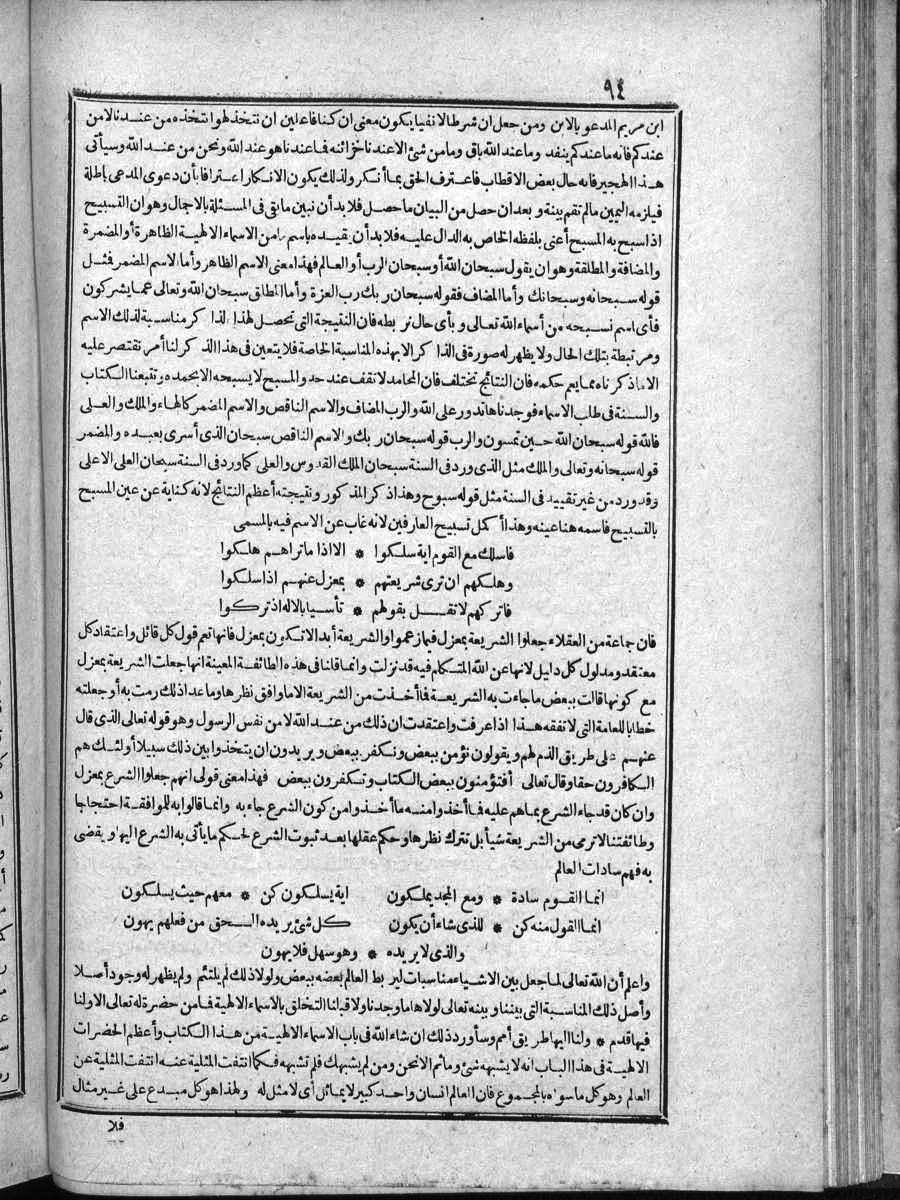 ٩٤
ابن مريم المدعو بالابن ومن جعل ان شرطا لا نفيا يكون معنى ان كنا فاعلين ان نتخذ لهوا نتخذه من عندنا لا من
عندكم فانه ما عندكم ينفد وما عند الله باق وما من شئ الا عندنا خزائنه فما عندنا هو عند الله ونحن من عند الله وسيأتى
هذا الهجير فانه حال بعض الاقطاب فاعترف الحق بما أنكر ولذلك يكون الانكار اعترافا بأن دعوى المدعى باطلة
فيلزمه اليمين مالم تقم بينة وبعد ان حصل من البيان ما حصل فلا بد أن نبين ما بقى فى المسئلة بالاجمال وهو ان التسبيح
اذا سبح به المسبح أعنى بلفظه الخاص به الدال عليه فلا بد أن يقيده باسم من الاسماء الالهية الظاهرة أو المضمرة
والمضافة والمطلقة وهو ان يقول سبحان الله أو سبحان الرب أو العالم فهذا معنى الاسم الظاهر وأما الاسم المضمر فمثل
قوله سبحانه وسبحانك وأما المضاف فقوله سبحان ربك رب العزة وأما المطلق سبحان الله وتعالى عما يشركون
فأى اسم نسبحه من أسماء الله تعالى وبأى حال نربطه فان النتيجة التى تحصل لهذا الذاكر مناسبة لذلك الاسم
ومرتبطة بتلك الحال ولا يظهر له صورة فى الذاكر الا بهذه المناسبة الخاصة فلا يتعين فى هذا الذكر لنا أمر نقتصر عليه
الا ما ذكرناه مما يعم حكمه فان النتائج تختلف فان المحامد لا تقف عند حد والمسبح لا يسبحه الا بحمده وتتبعنا الكتاب
والسنة فى طلب الاسماء فوجدناها تدور على الله والرب المضاف والاسم الناقص والاسم المضمر كالهاء والملك والعلى
فالله قوله سبحان الله حين تمسون والرب قوله سبحان ربك والاسم الناقص سبحان الذى أسرى بعبده والمضمر
قوله سبحانه وتعالى والملك مثل الذى ورد فى السنة سبحان الملك القدوس والعلى كما ورد فى السنة سبحان العلى الاعلى
وقد ورد من غير تقييد فى السنة مثل قوله سبوح وهذا ذكر المذكور ونتيجته أعظم النتائج لانه كناية عن عين المسبح
بالتسبيح فاسمه هنا عينه وهذا أكمل تسبيح العارفين لانه غاب عن الاسم فيه بالمسمى
فاسلك مع القوم اية سلكوا * الا اذا ما تراهم هلكوا
وهلكهم ان ترى شريعتهم * بمعزل عنهم اذا سلكوا
فاتركهم لا تقل بقولهم * تأسيا بالاله اذ تركوا
فان جماعة من العقلاء جعلوا الشريعة بمعزل فيما زعموا والشريعة أبدا لا تكون بمعزل فانها تعم قول كل قائل واعتقاد كل
معتقد ومدلول كل دليل لانها عن الله المتكلم فيه قد نزلت وانما قلنا فى هذه الطائفة المعينة انها جعلت الشريعة بمعزل
مع كونها قالت ببعض ما جاءت به الشريعة فما أخذت من الشريعة الا ما وافق نظرها وما عدا ذلك رمت به أو جعلته
خطابا للعامة التى لا تفقه هذا اذا عرفت واعتقدت ان ذلك من عند الله لا من نفس الرسول وهو قوله تعالى الذى قال
عنهم على طريق الذم لهم ويقولون نؤمن ببعض ونكفر ببعض ويريدون ان يتخذوا بين ذلك سبيلا أولئك هم
الكافرون حقا وقال تعالى أفتؤمنون ببعض الكتاب وتكفرون ببعض فهذا معنى قولى انهم جعلوا الشرع بمعزل
وان كان قد جاء الشرع بما هم عليه فما أخذوا منه ما أخذوا من كون الشرع جاء به وانما قالوا به للموافقة احتجاجا
وطائفتنا لا ترمى من الشريعة شيأ بل تترك نظرها وحكم عقلها بعد ثبوت الشرع لحكم ما يأتى به الشرع اليها ويقضى
به فهم سادات العالم
انما القوم سادة * ومع المجد يملكون اية يسلكون كن * معهم حيث يسلكون
انما القول منه كن * للذى شاء أن يكون كل شئ يريده الحق من فعلهم يهون
والذى لا يريده * وهو سهل فلا يهون
واعلم أن الله تعالى لما جعل بين الاشياء مناسبات ليربط العالم بعضه ببعض ولولا ذلك لم يلتئم ولم يظهر له وجود أصلا
وأصل ذلك المناسبة التى بيننا وبينه تعالى لولاها ما وجدنا ولا قبلنا التخلق بالاسماء الالهية فما من حضرة له تعالى الا ولنا
فيها قدم * ولنا اليها طريق أمم وسأورد ذلك ان شاء الله فى باب الاسماء الالهية من هذا الكتاب وأعظم الحضرات
الالهية فى هذا الباب انه لا يشبهه شئ وما ثم الا نحن ومن لم يشبهك فلم تشبهه فكما انتفت المثلية عنه انتفت المثلية عن
العالم وهو كل ما سواه بالمجموع فان العالم انسان واحد كبير لا يماثل أى لا مثل له ولهذا هو كل مبدع على غير مثال
فلا